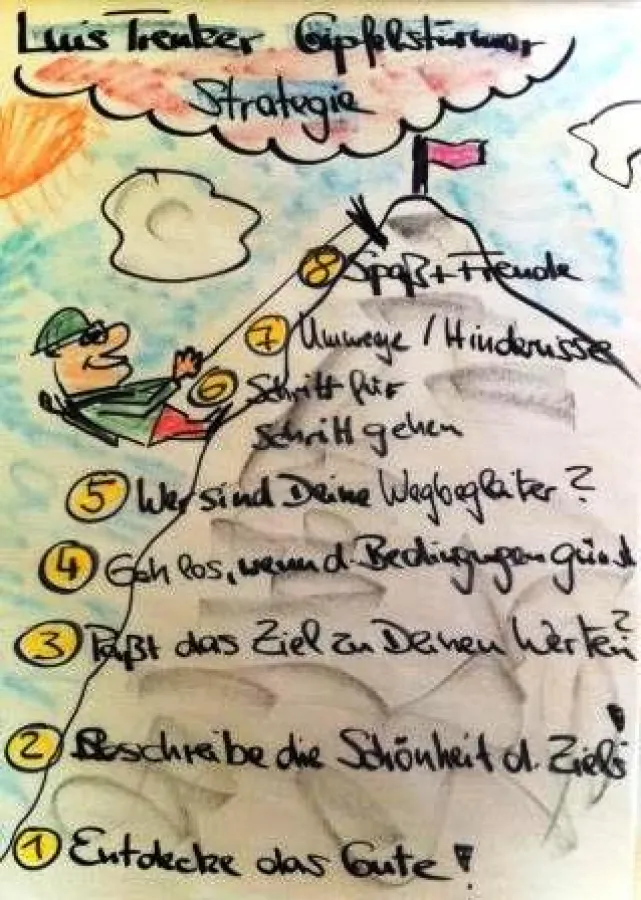 Luis Trenker Gipfelstürmer
Strategie
8 Spaß + Freude
7 Umwege / Hindernisse
6 Schritt für
Schritt gehen
5 Wer sind Deine Wegbegleiter?
4 Geh los, wenn d. Bedingungen günst
3 Paßt das Ziel zu Deinen Werten?
2 Beschreibe die Schönheit d. Ziels!
1 Entdecke das Gute!